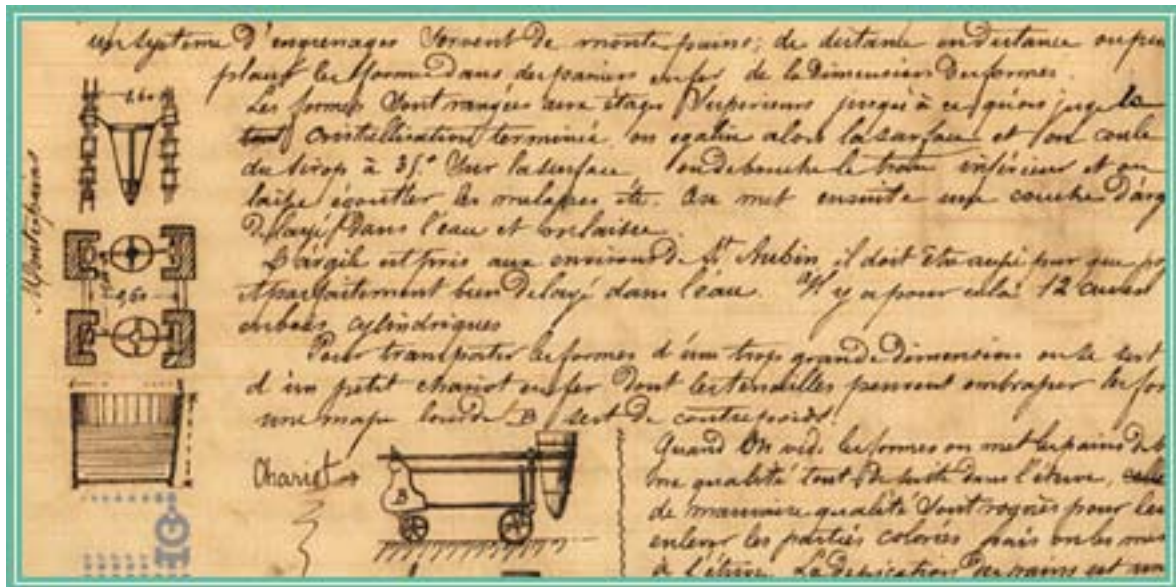 un système d'engrenages servent de monte pains; de distance en distance on peu
plaçait les formes dans des paniers en fer de la dimension des formes.
Les formes sont rangées aux étages supérieurs jusqu'à ce qu'on juge la
cristallisation terminée on égalise alors la surface et on coule
du sirop à 35° sur la surface on debouche le trou inférieur et on
laisse égoutter les melasses etc. On met ensuite une couche d'arg
délayé dans l'eau et on laisse
L'argile est pris aux environs de St Aubin il doit être aussi pur que po
et parfaitement bien délayé dans l'eau. Il y a pour cela 12 cuves
en bois cylindriques
Pour transporter les formes d'une trop grande dimension on se sert
d'un petit chariot en fer dont les tenailles peuvent embrasser les for
une masse lourde B sert de contrepoids.
Quand on vide les formes on met les pains de b
nne qualité tout de suite dans l'étuve,
de mauvaise qualité sont rognés pour leur
enlever les parties colorées puis on les met
à l'étuve. La dessication des pains est un
Monte pains
0,60
Chariot
B